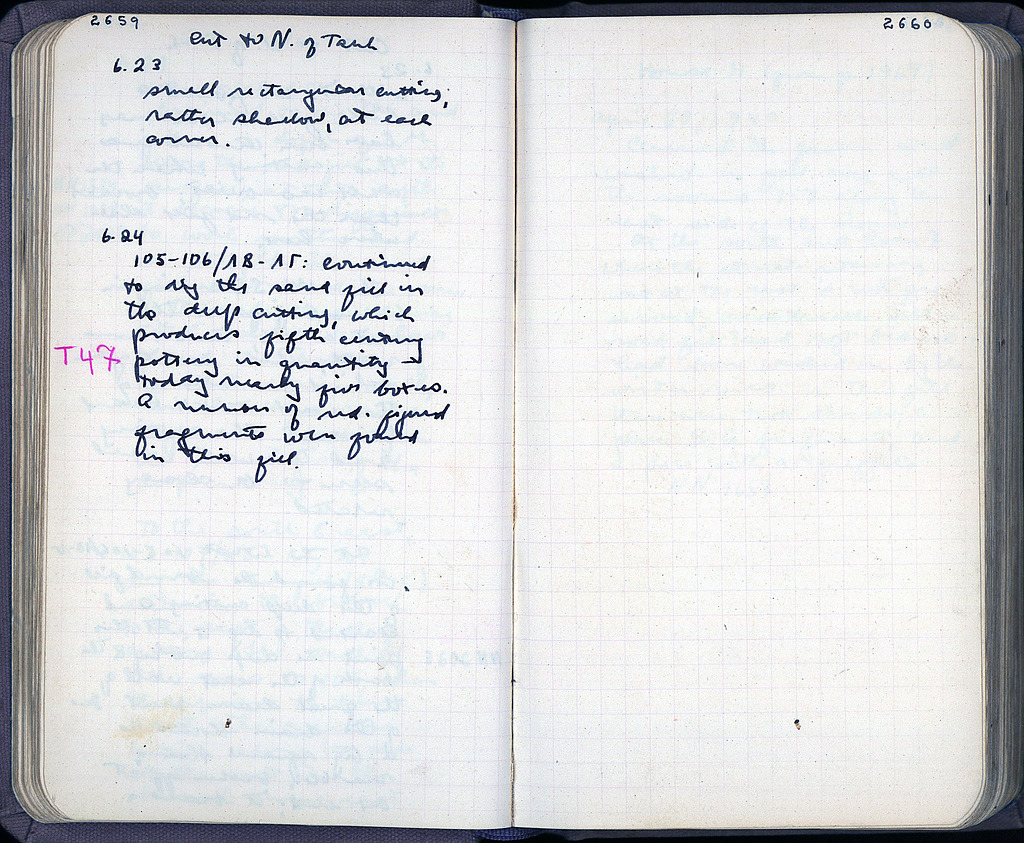 2659
2660
Cut to N. of Tank
6.23
small rectangular cutting,
rather shadow, at each
corner.
6.24
105-106/ΛB-ΛΓ: continued
to dig the sand fill in
the deep cutting, which
produces fifth century
T47
pottery in quantity -
today nearly five boxes.
A number of red. figured
fragments were found
in this fill.